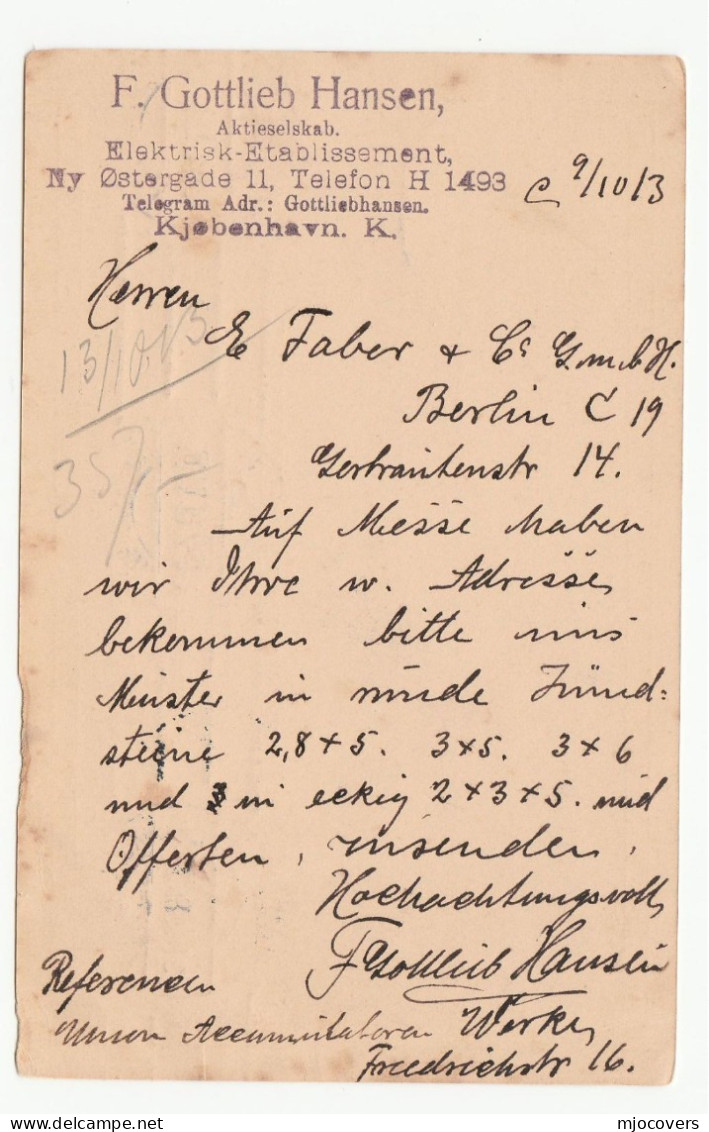 F. Gottlieb Hansen,
Aktieselskab.
Elektrisk-Etablissement,
Ny Østergade 11, Telefon H 1493
Telegram Adr.: Gottliebhansen.
Kjøbenhavn. K.
C 9/10/3
Herren
E Faber & Co G.m.b.H.
Berlin C 19
Gertrautenstr 14.
13/10.13
357
Auf Messe haben
wir Ihre w. Adresse
bekommen bitte uns
Muster in runde Zünd=
steine 2,8+5. 3+5. 3+6
und in eckig 2+3+5. und
Offerten, insenden,
Hochachtungsvoll
F Gottlieb Hansen
Referencen
Union Accumulatoren Werke
Friedrichstr 16.
mjocovers